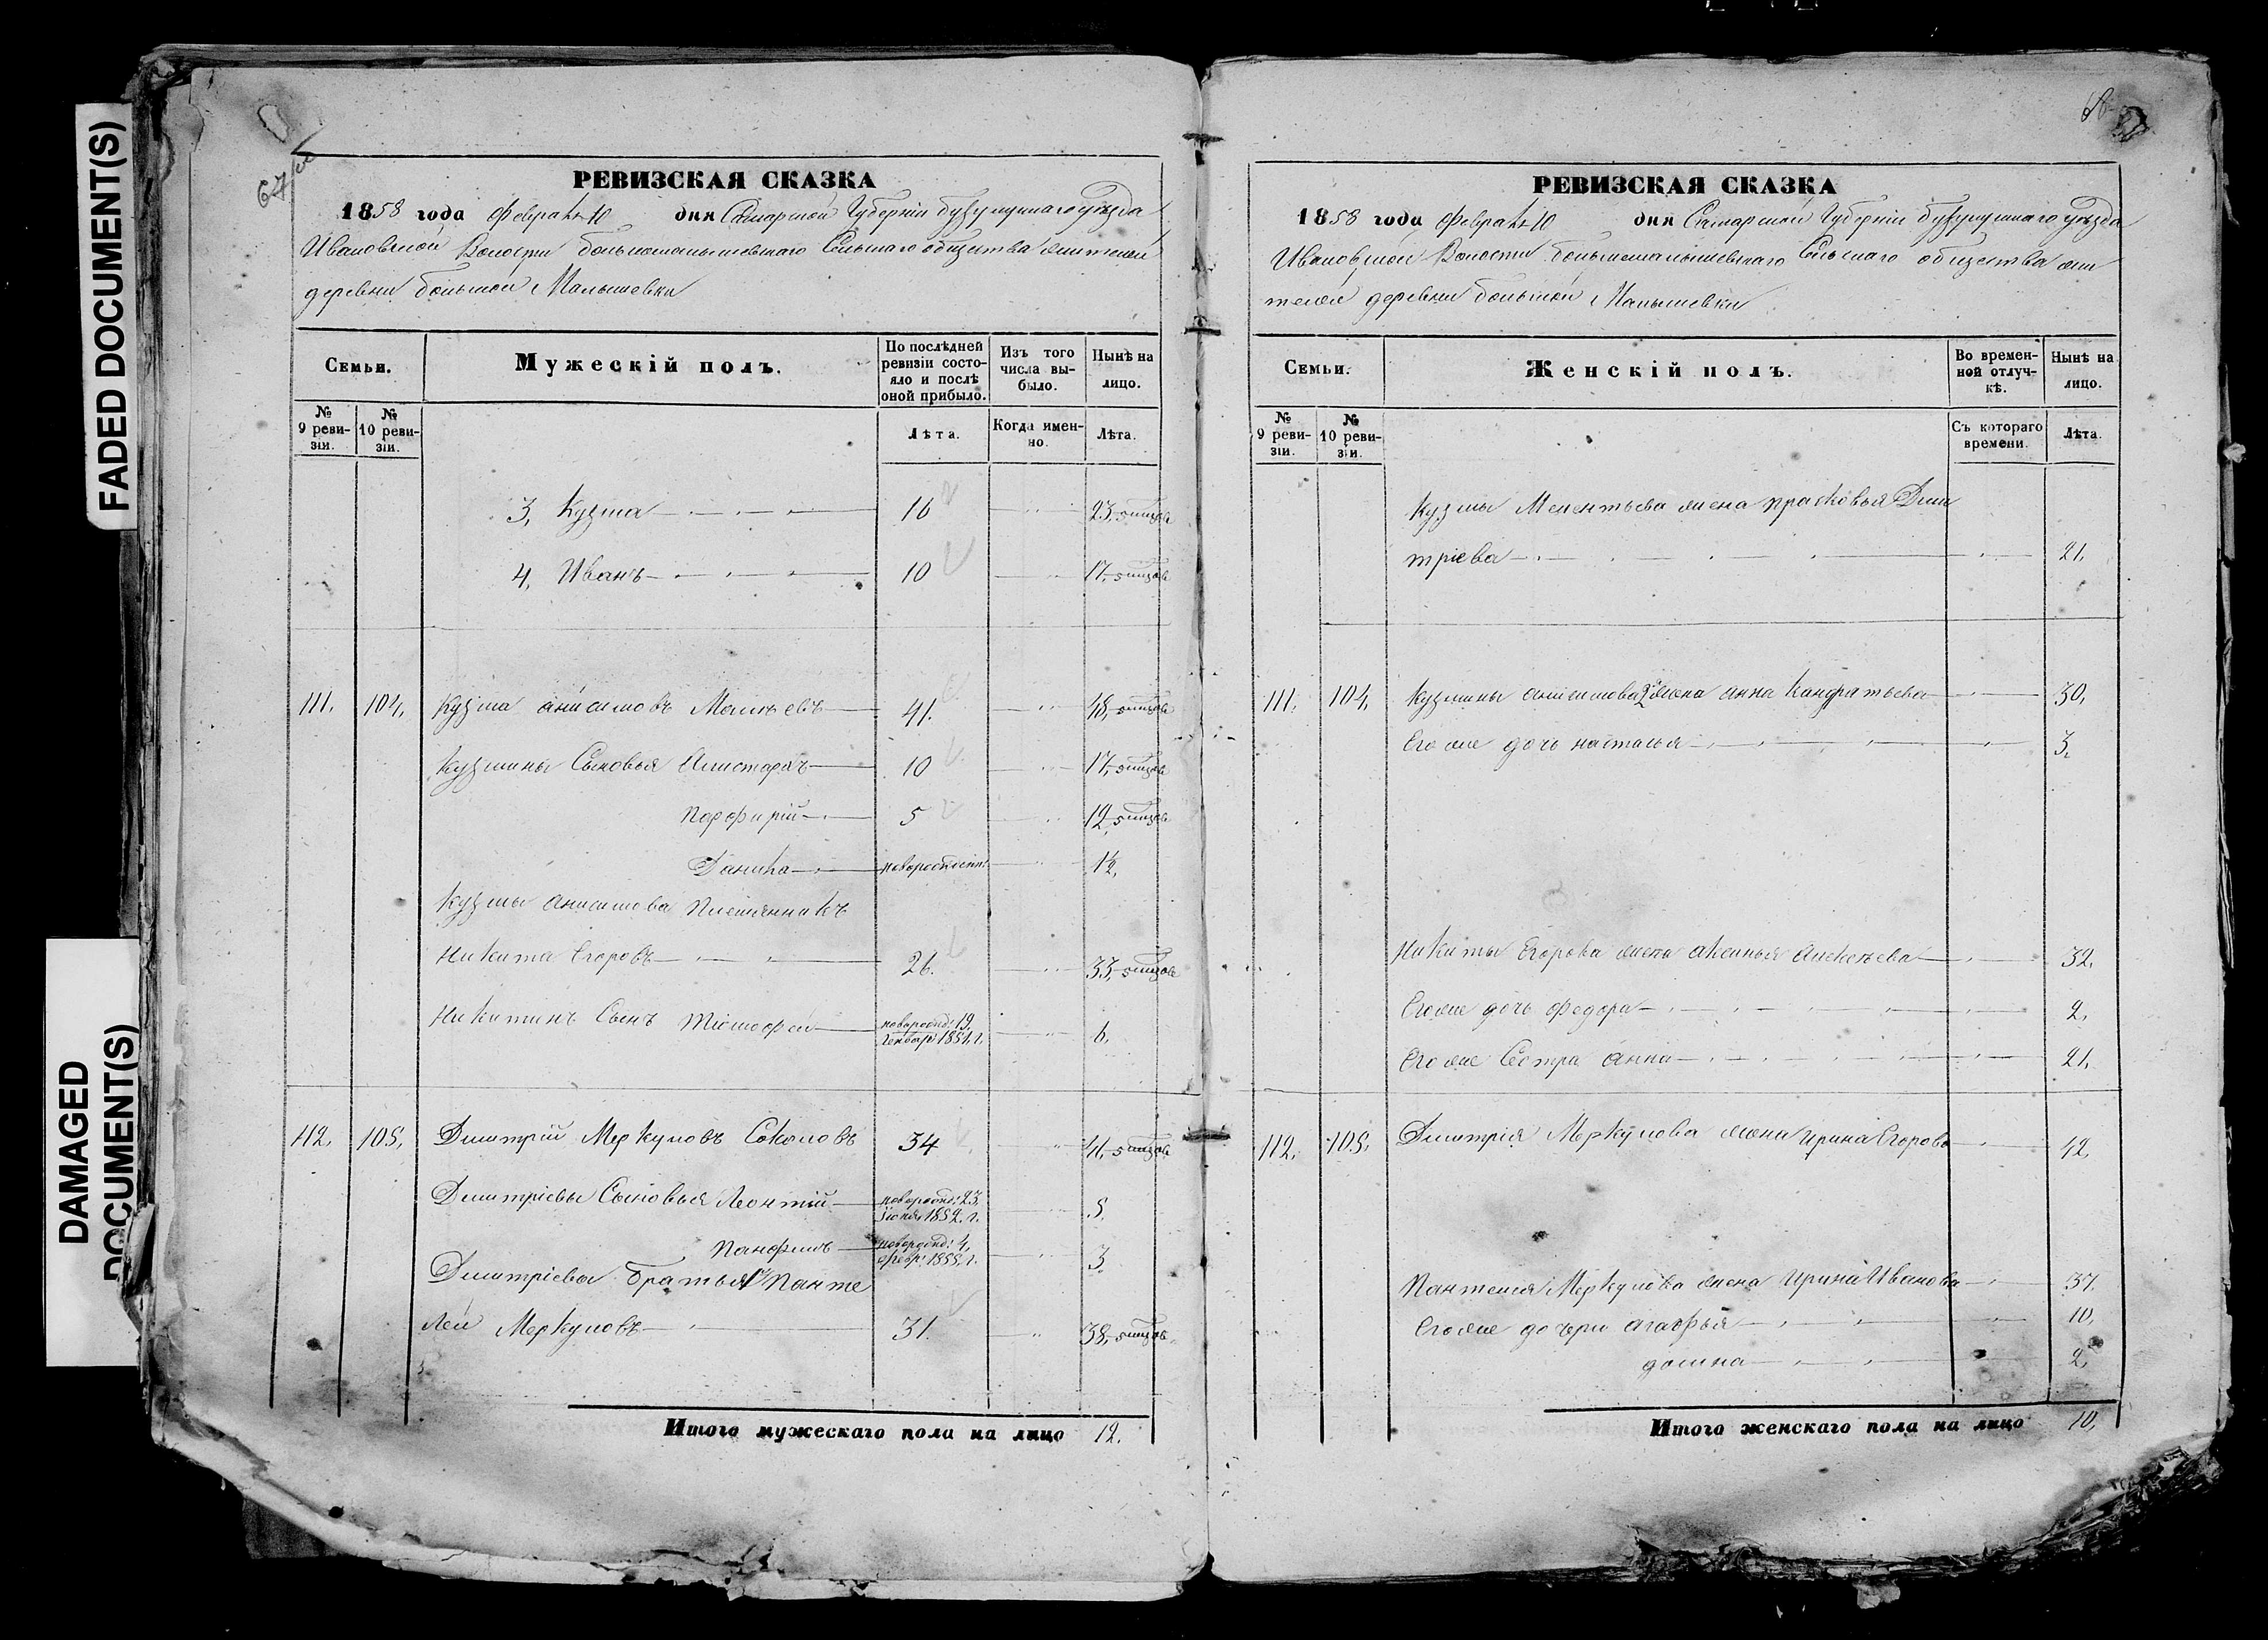 FADED DOCUMENT(S)
DAMAGED
DOCUMENT(S)
67
РЕВИЗСКАЯ СКАЗКА
1858 года февраля 10 дня Самарской Губерніи бузулукскаго уѣзда
Ивановской Волости большемалышевскаго Сельскаго общества жителей
деревни большой Малышевки
Семьи.
Мужескій полъ.
По послѣдней ревизіи состояло и послѣ оной прибыло.
Изъ того числа выбыло.
Нынѣ на лицо.
№ 9 ревизіи.
№ 10 ревизіи.
Лѣта.
Когда именно.
Лѣта.
3, Кузма 16 23,
4, Иванъ 10 17,
111. 104, Кузма анисимовъ 41. 48,
Кузмины Сыновья Алистархъ 10 17,
Порфирій 5 12,
Данила новорожденн: 1/2,
Кузмы анисимова племянникъ
Никита Егоровъ 26. 33,
Никитинъ Сынъ Тимофей новорожд: 19. генвар: 1851. г. 6.
112, 105, Дмитрій Меркуловъ Соколовъ 34 41,
Дмитріевы Сыновья Леонтій новорожд: 23. іюня 1852. г. 5.
Панфилъ новорожд: 4, февр: 1855. г. 3
Дмитріева братья 1й Панте
лей Меркуловъ 31. 38,
Итого мужескаго пола на лицо 12.
РЕВИЗСКАЯ СКАЗКА
1858 года февраля 10 дня Самарской Губерніи бузулукскаго уѣзда
Ивановской Волости большемалышевскаго Сельскаго общества жи
телей деревни большой Малышевки
Семьи.
Женскій полъ.
Во временной отлучкѣ.
Нынѣ на лицо.
№ 9 ревизіи.
№ 10 ревизіи.
Съ котораго времени.
Лѣта.
Кузмы Мелентьева жена прасковья Дми
тріева 21,
111. 104, Кузмины анисимова 2я жена анна Кандратьева 30,
Его же дочь настасья 3,
Никиты Егорова жена аксинья алексѣева 32,
Его же дочь федора 2,
Его же Сестра анна 21,
112, 105, Дмитрія Меркулова жена ирина Егорова 42,
Пантелея Меркулова жена ирина Иванова 37.
Его же дочери агафья 10,
домна 2,
Итого женскаго пола на лицо 10,